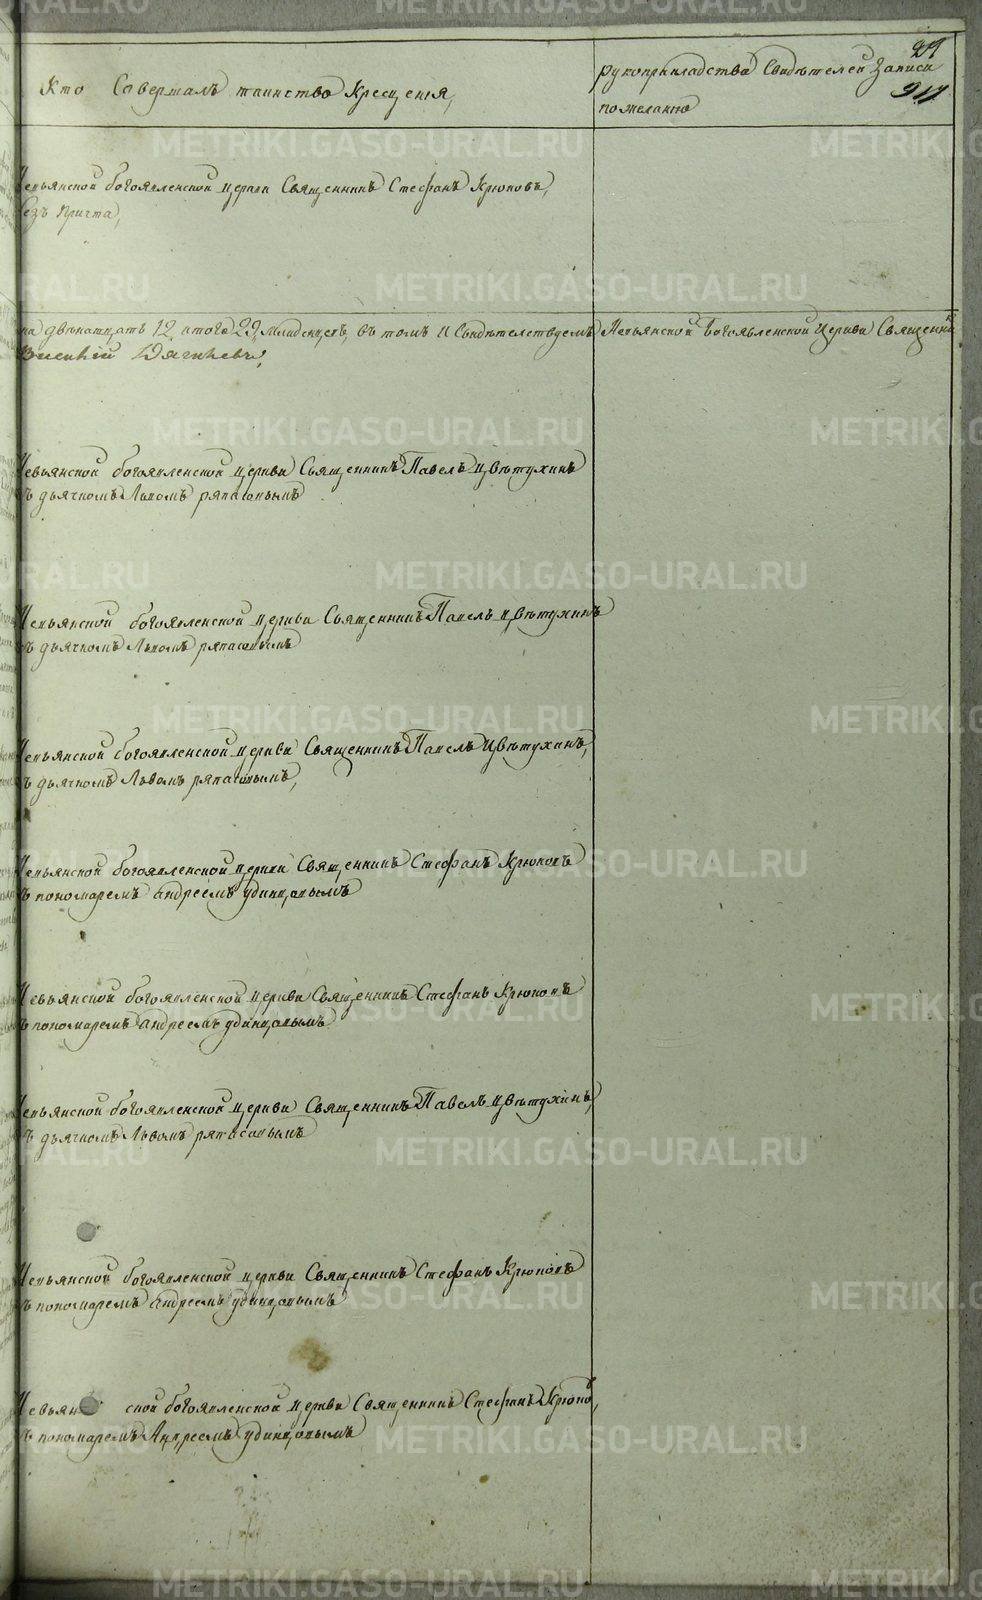 Кто Совершалъ таинство Крещенія,
рукоприкладства Свидѣтелей Записи
по желанію
Невьянской богоявленской церкви Священникъ Стефанъ Крюковъ,
безъ причта,
на двѣнатцать 12 итого 29 младенцевъ, въ томъ и Свидѣтелствуемъ Невьянской Богоявленской Церкви Священникъ
Дягилевъ,
Невьянской богоявленской церкви Священникъ Павелъ Цвѣтухинъ
съ дьячкомъ Львомъ ряпасовымъ
Невьянской богоявленской церкви Священникъ Павелъ Цвѣтухинъ
съ дьячкомъ Львомъ ряпасовымъ
Невьянской богоявленской церкви Священникъ Павелъ Цвѣтухинъ,
съ дьячкомъ Львомъ ряпасовымъ,
Невьянской богоявленской церкви Священникъ Стефанъ Крюковъ
съ пономаремъ андреемъ удинцовымъ
Невьянской богоявленской церкви Священникъ Стефанъ Крюковъ
съ пономаремъ андреемъ удинцовымъ
Невьянской богоявленской церкви Священникъ Павелъ Цвѣтухинъ,
съ дьячкомъ Львомъ ряпасовымъ
Невьянской богоявленской церкви Священникъ Стефанъ Крюковъ
съ пономаремъ андреемъ удинцовымъ
Невьянской богоявленской церкви Священникъ Стефанъ Крюковъ,
съ пономаремъ Андреемъ удинцовымъ
METRIKI.GASO-URAL.RU